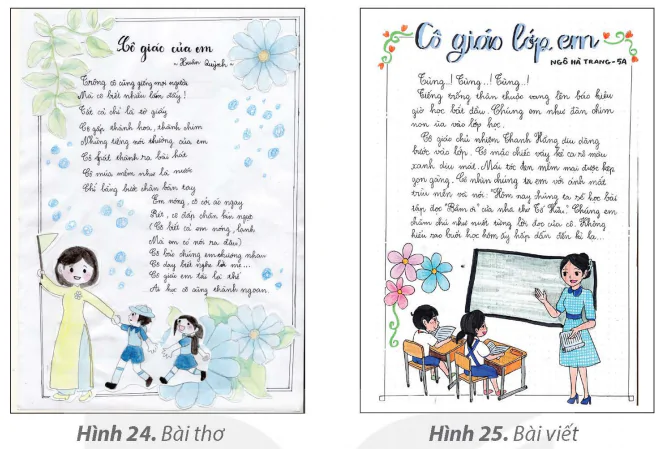 Cô giáo của em
~ Xuân Quỳnh ~
Trông cô cũng giống mọi người
Mà cô biết nhiều lắm đấy!
Tất cả chỉ là tờ giấy
Cô gấp thành hoa, thành chim
Những tiếng nói thường của em
Cô phát thành ra bài hát
Cô múa mềm như là nước
Chỉ bằng bước chân bàn tay
Em nóng, cô cởi áo ngay
Rét, cô đắp chăn bịn ngot
(Cô biết cả em nóng, lạnh
Mà em có nói ra đâu)
Cô bảo chúng em thương nhau
Cô dạy biết nghe lời mẹ...
Cô giáo em tài là thế
Ai học cô cũng thành ngoan.
Hình 24. Bài thơ
Cô giáo lớp em
NGÔ HÀ TRANG - 5A
Tùng..! Tùng..! Tùng..!
Tiếng trống thân thuộc vang lên báo hiệu
giờ học bắt đầu. Chúng em như đàn chim
non ùa vào lớp học.
Cô giáo chủ nhiệm Thanh Hằng dịu dàng
bước vào lớp. Cô mặc chiếc váy kẻ ca rô màu
xanh dịu mát. Mái tóc đen mềm mại được kẹp
gọn gàng. Cô nhìn chúng ta em với ánh mắt
trìu mến và nói: "Hôm nay chúng ta sẽ học bài
tập đọc "Bầm ơi" của nhà thơ Tố Hữu." Chúng em
chăm chú như nuốt từng lời đọc của cô. Không
hiểu sao buổi học hôm ấy hấp dẫn đến kì lạ...
Hình 25. Bài viết